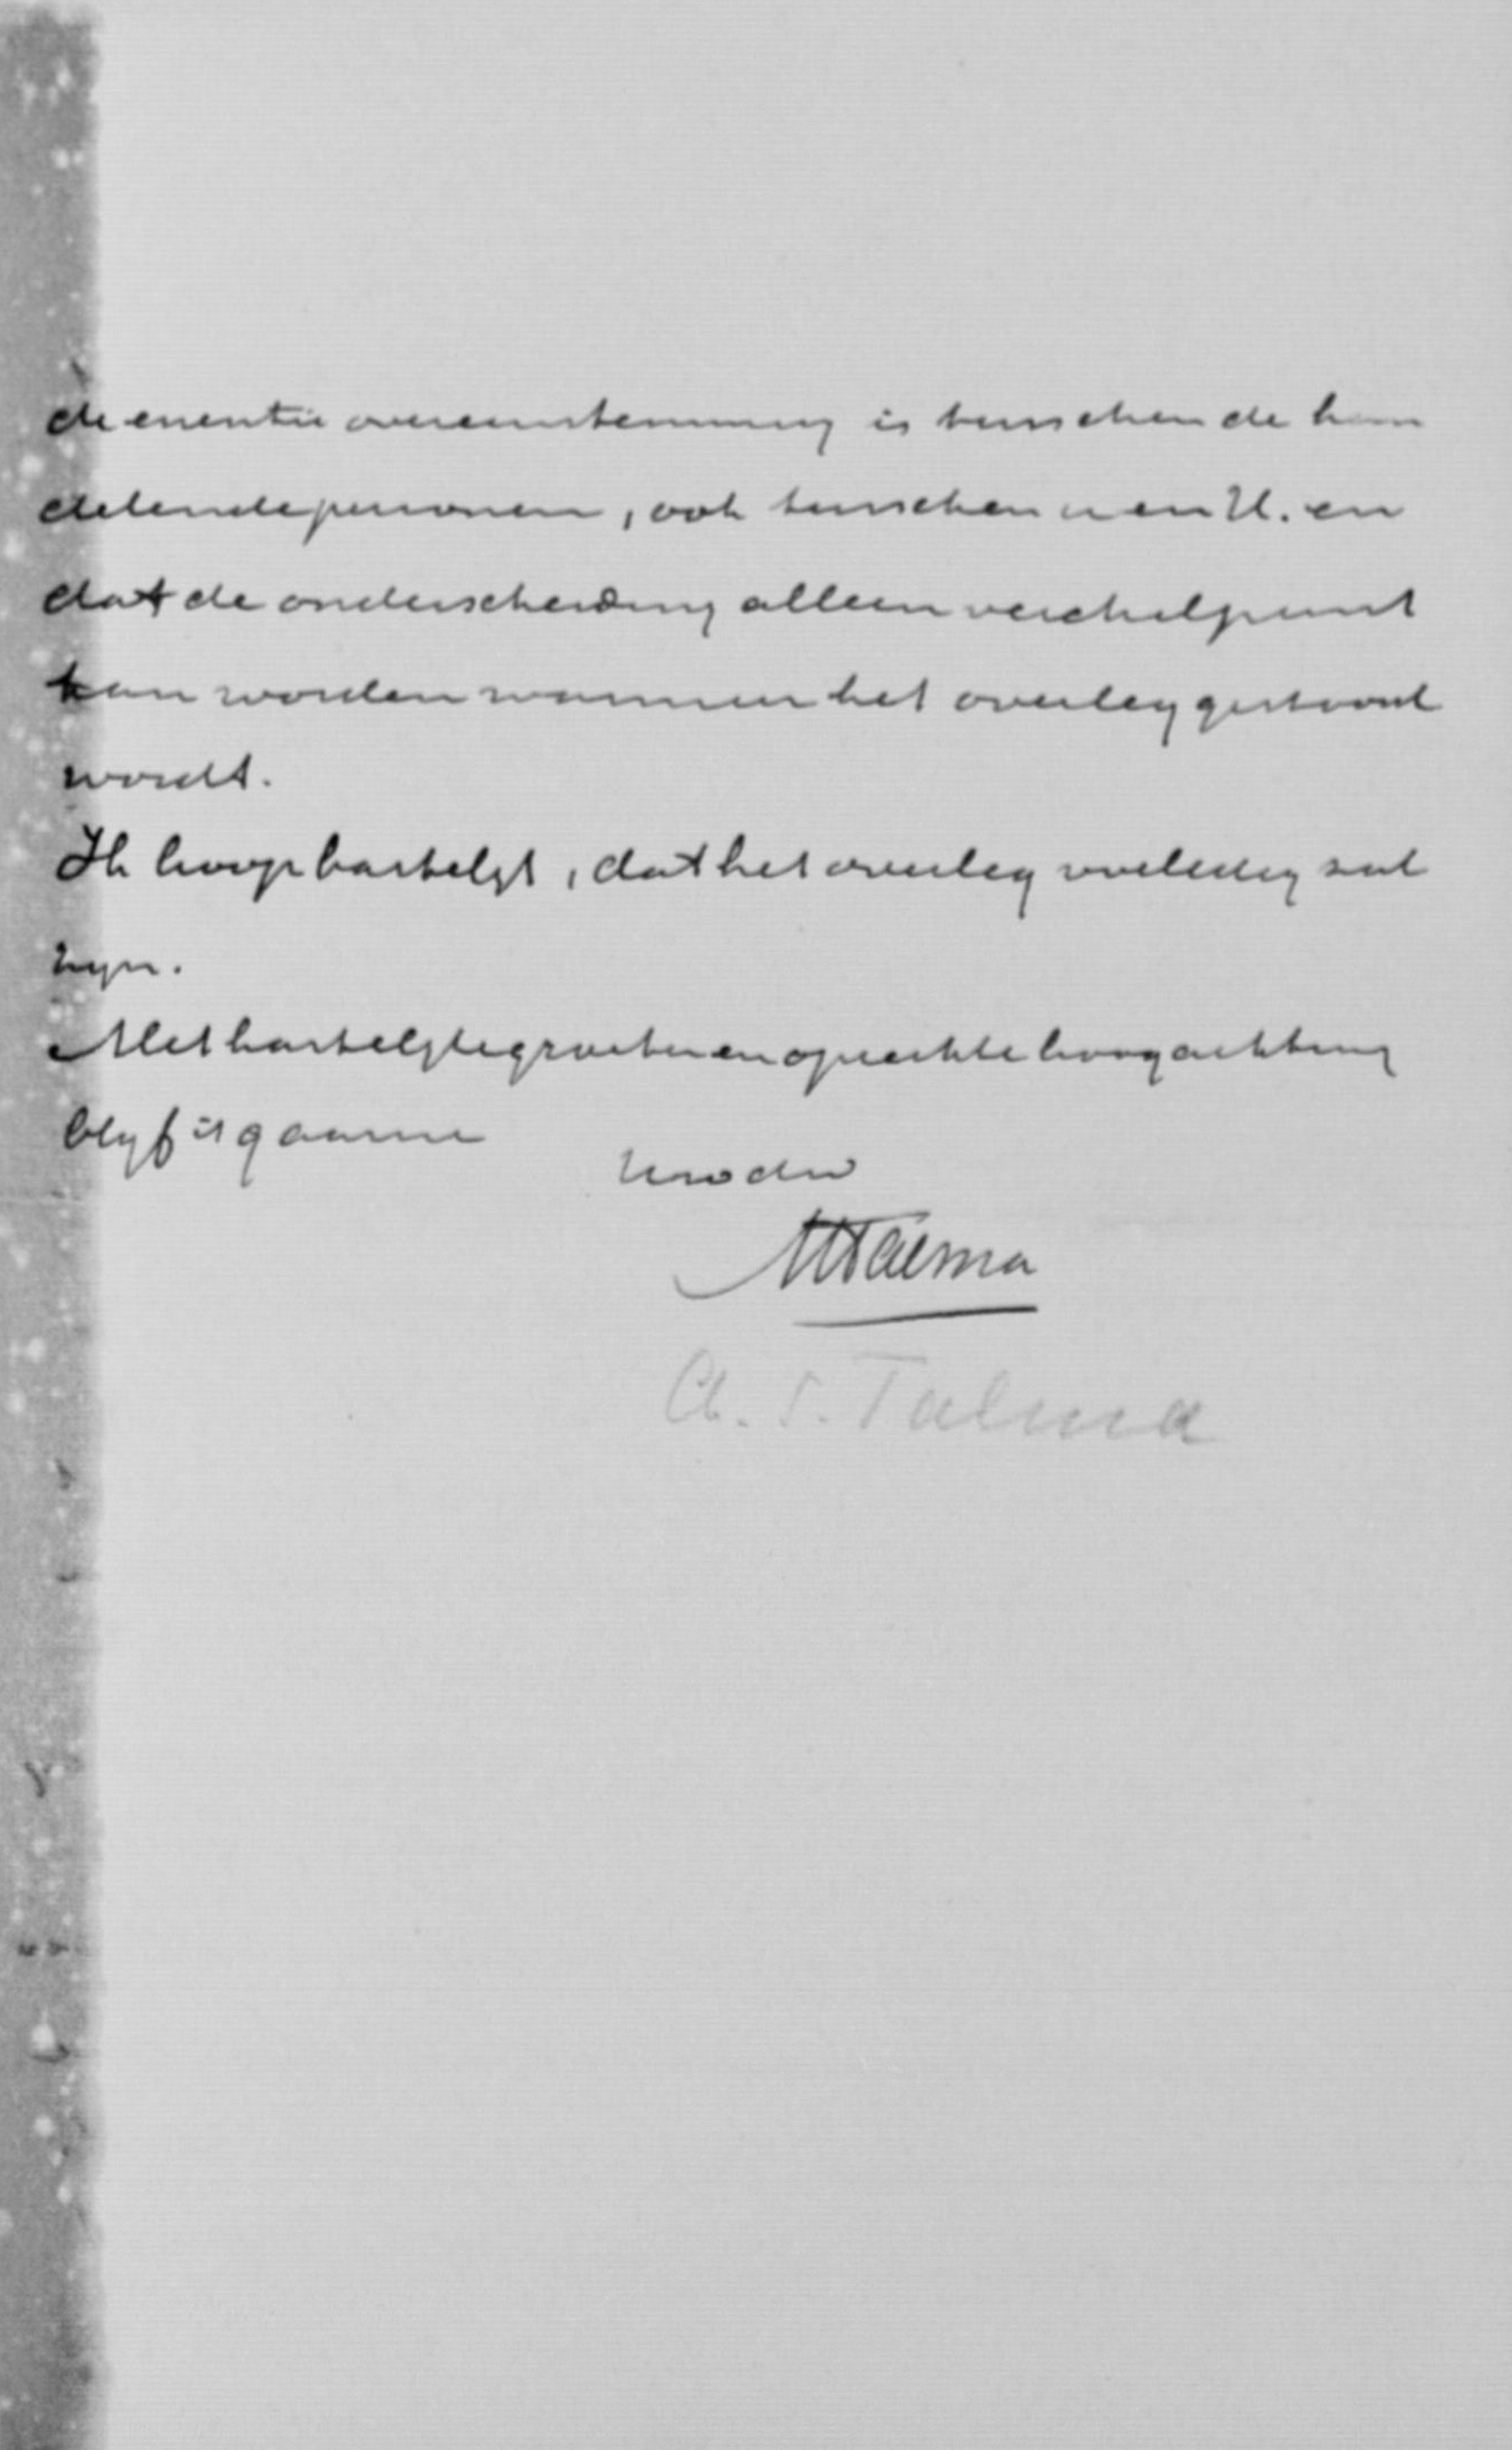 de essentie overeenstemming is tusschen de han
delende personen, ook tusschen u en U. en
dat de onderscheiding alleen verschilpunt
kan worden wanneer het overleg gestoord
wordt.
Ik hoop hartelijk, dat het overleg volledig zal
zijn.
Met hartelijke groeten en oprechte hoogachting
blijf ik gaarne
Uw dw
ASTalma
A. S. Talma